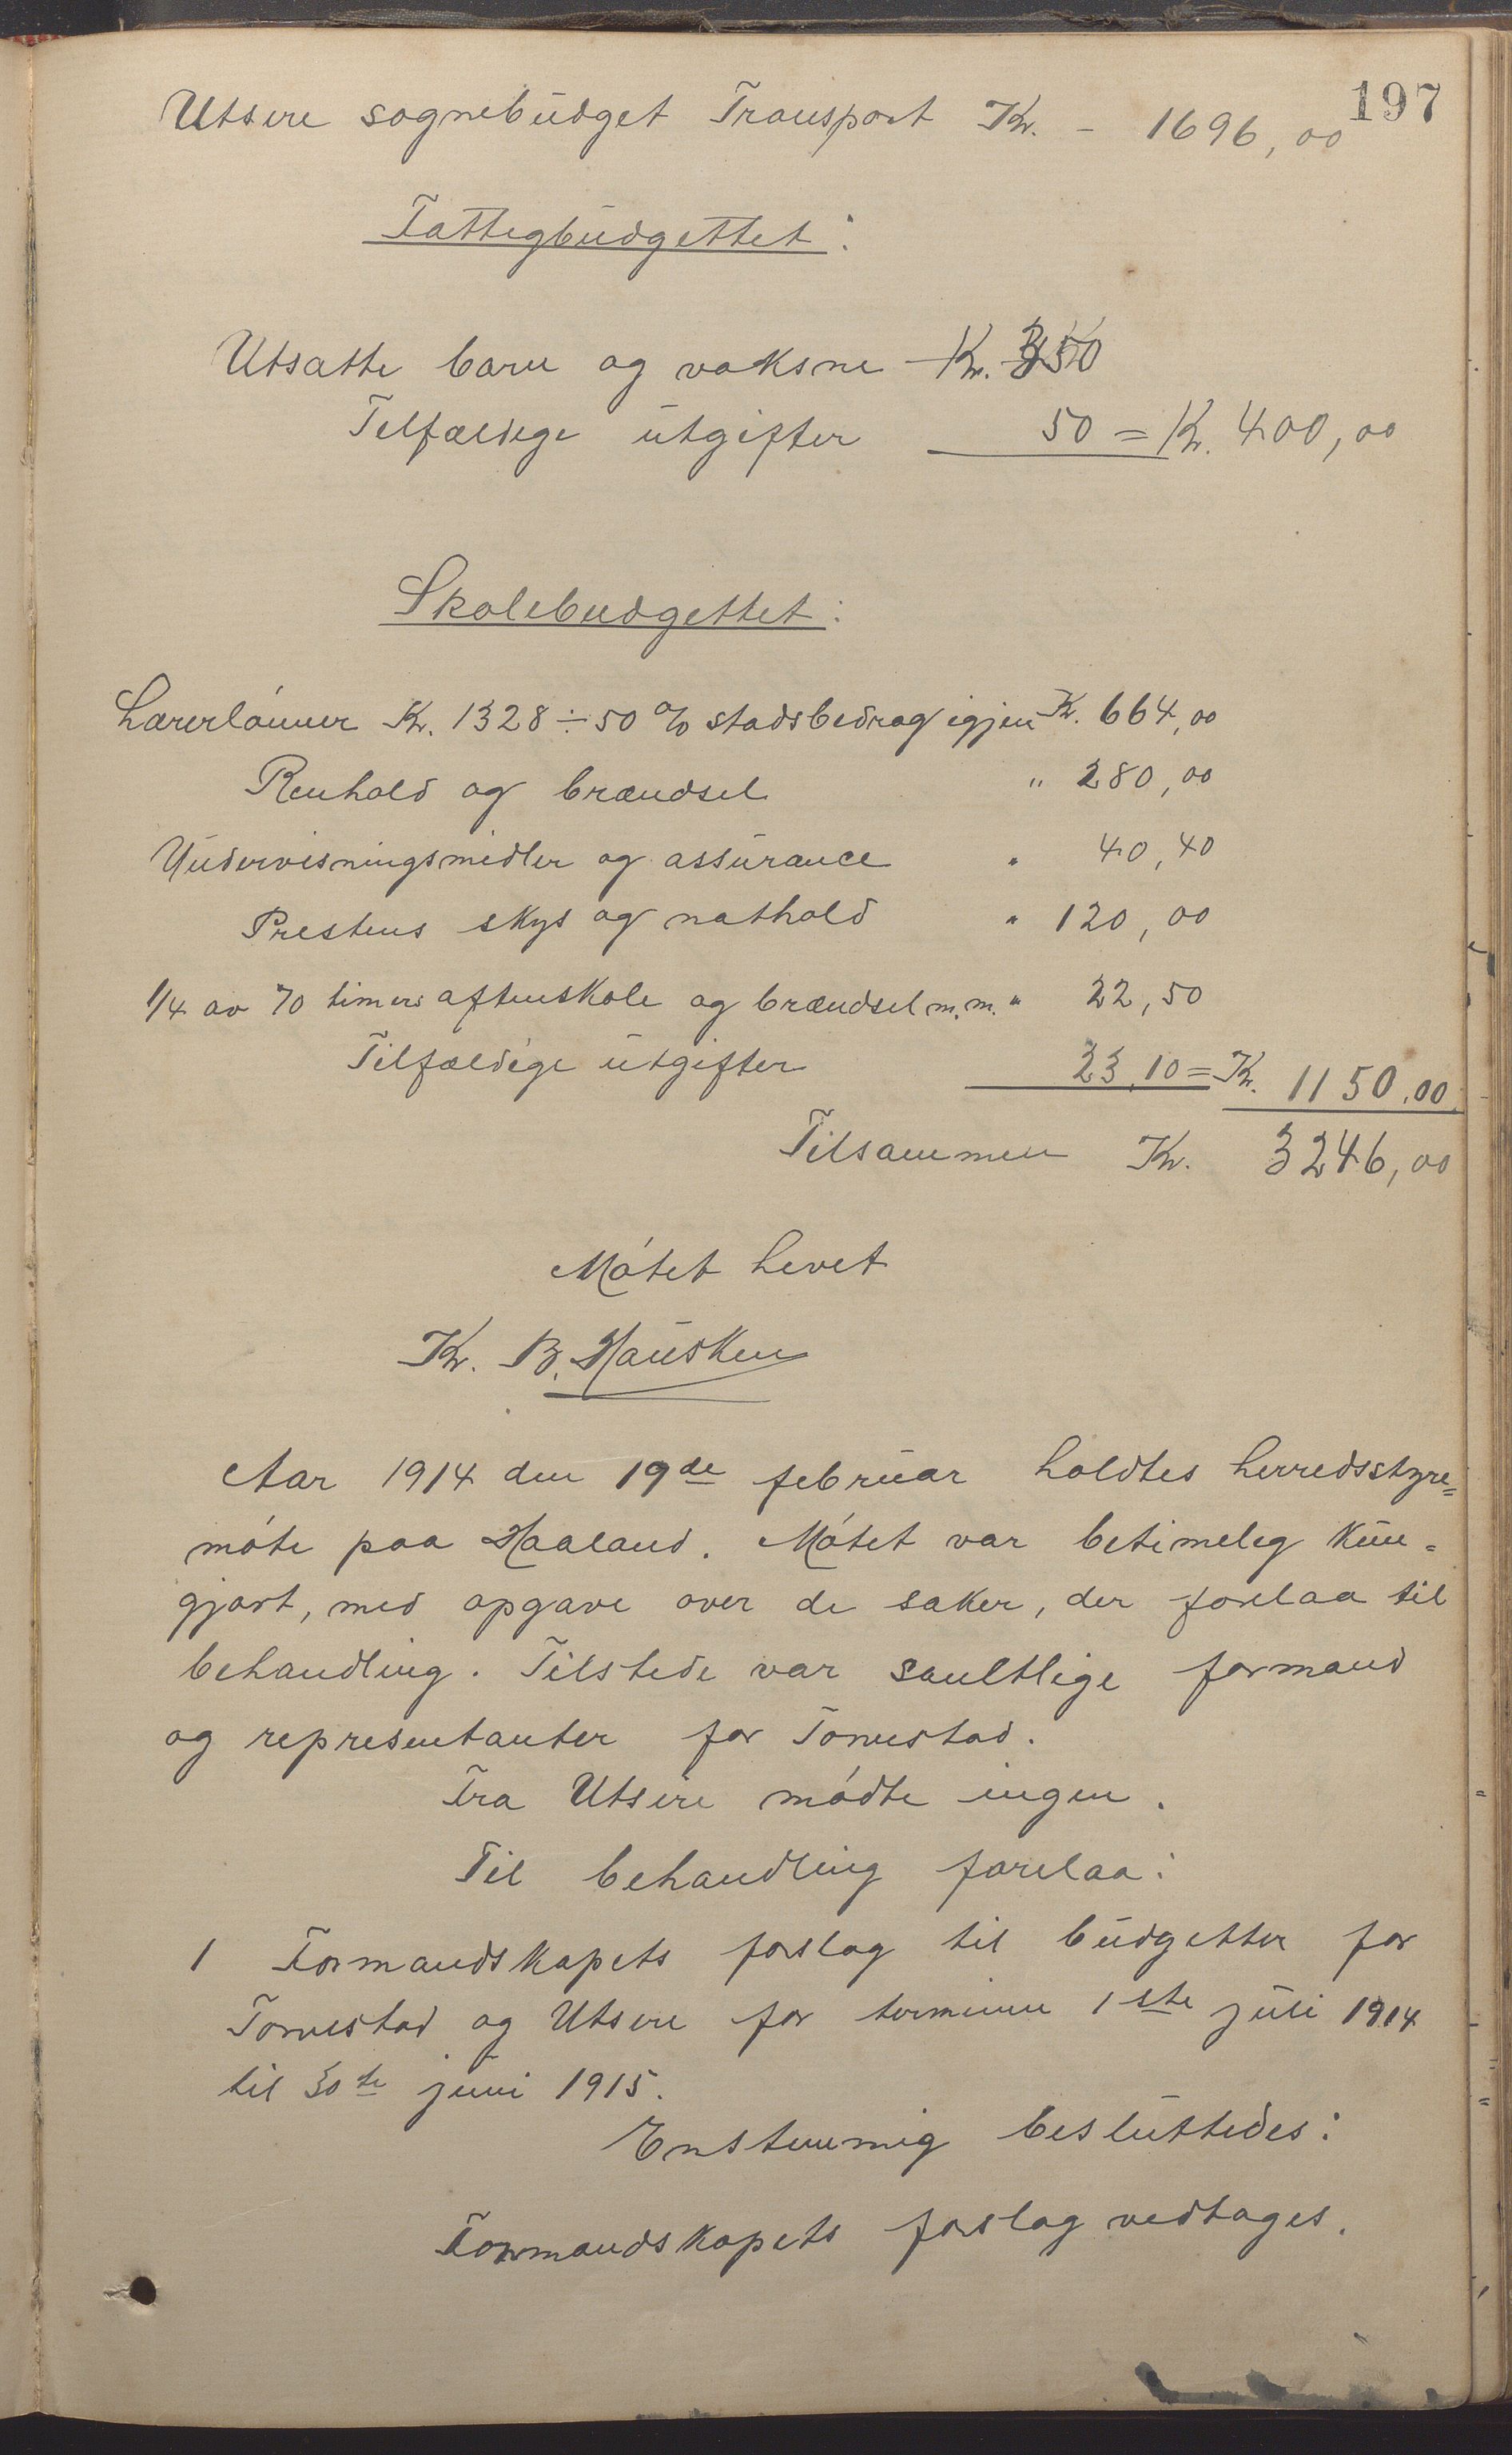 197
Utsire sognebudget Transport Kr. - 1696,00
Fattigbudgettet:
Utsatte barn og voksne Kr. 350
Tilfældige utgifter 50 = Kr. 400,00
Skolebudgettet:
Lærerlónner Kr. 1328 ÷ 50 % stadsbedrag igjen Kr. 664,00
Renhold og brændsel " 280,00
Undervisningsmidler og assurance " 40,40
Prestens skys og nathold " 120,00
1/4 av 70 timers aftenskole og brændsel m.m. " 22,50
Tilfældige utgifter 23,10 = Kr. 1150,00
Tilsammen Kr. 3246,00
Mótet hevet
Kr. B. Hausken
Aar 1914 den 19de februar holdtes herredsstyre=
móte paa Haaland. Mótet var betimelig kun=
gjort, med opgave over de saker, der forelaa til
behandling. Tilstede var samltlige formænd
og representanter for Torvestad.
Fra Utsire módte ingen.
Til behandling forelaa:
1 Formandskapets forslag til budgetter for
Torvestad og Utsire for terminen 1ste juli 1914
til 30te juni 1915.
Enstemmig besluttedes:
Formandskapets forslag vedtages.